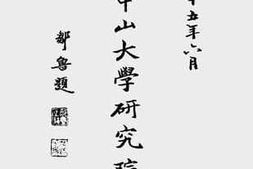 十五年六月
中山大學研究院
鄒魯題